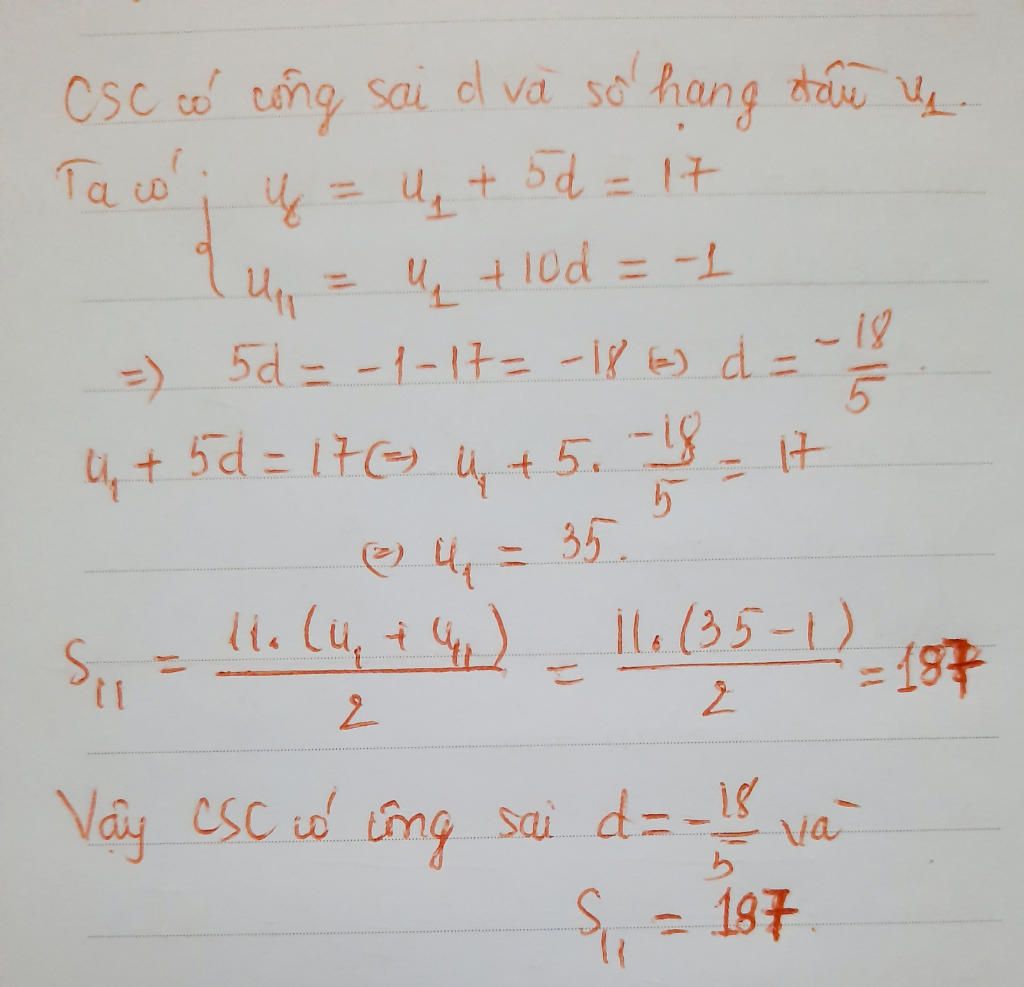 CSC có công sai d và số hạng đầu u₁.
Ta có: u₆ = u₁ + 5d = 17
u₁₁ = u₁ + 10d = -1
=> 5d = -1-17 = -18 <=> d = -18/5.
u₁ + 5d = 17 <=> u₁ + 5. -18/5 = 17
<=> u₁ = 35.
S₁₁ = 11.(u₁ + u₁₁)/2 = 11.(35-1)/2 = 187
Vậy CSC có công sai d = -18/5 và
S₁₁ = 187.